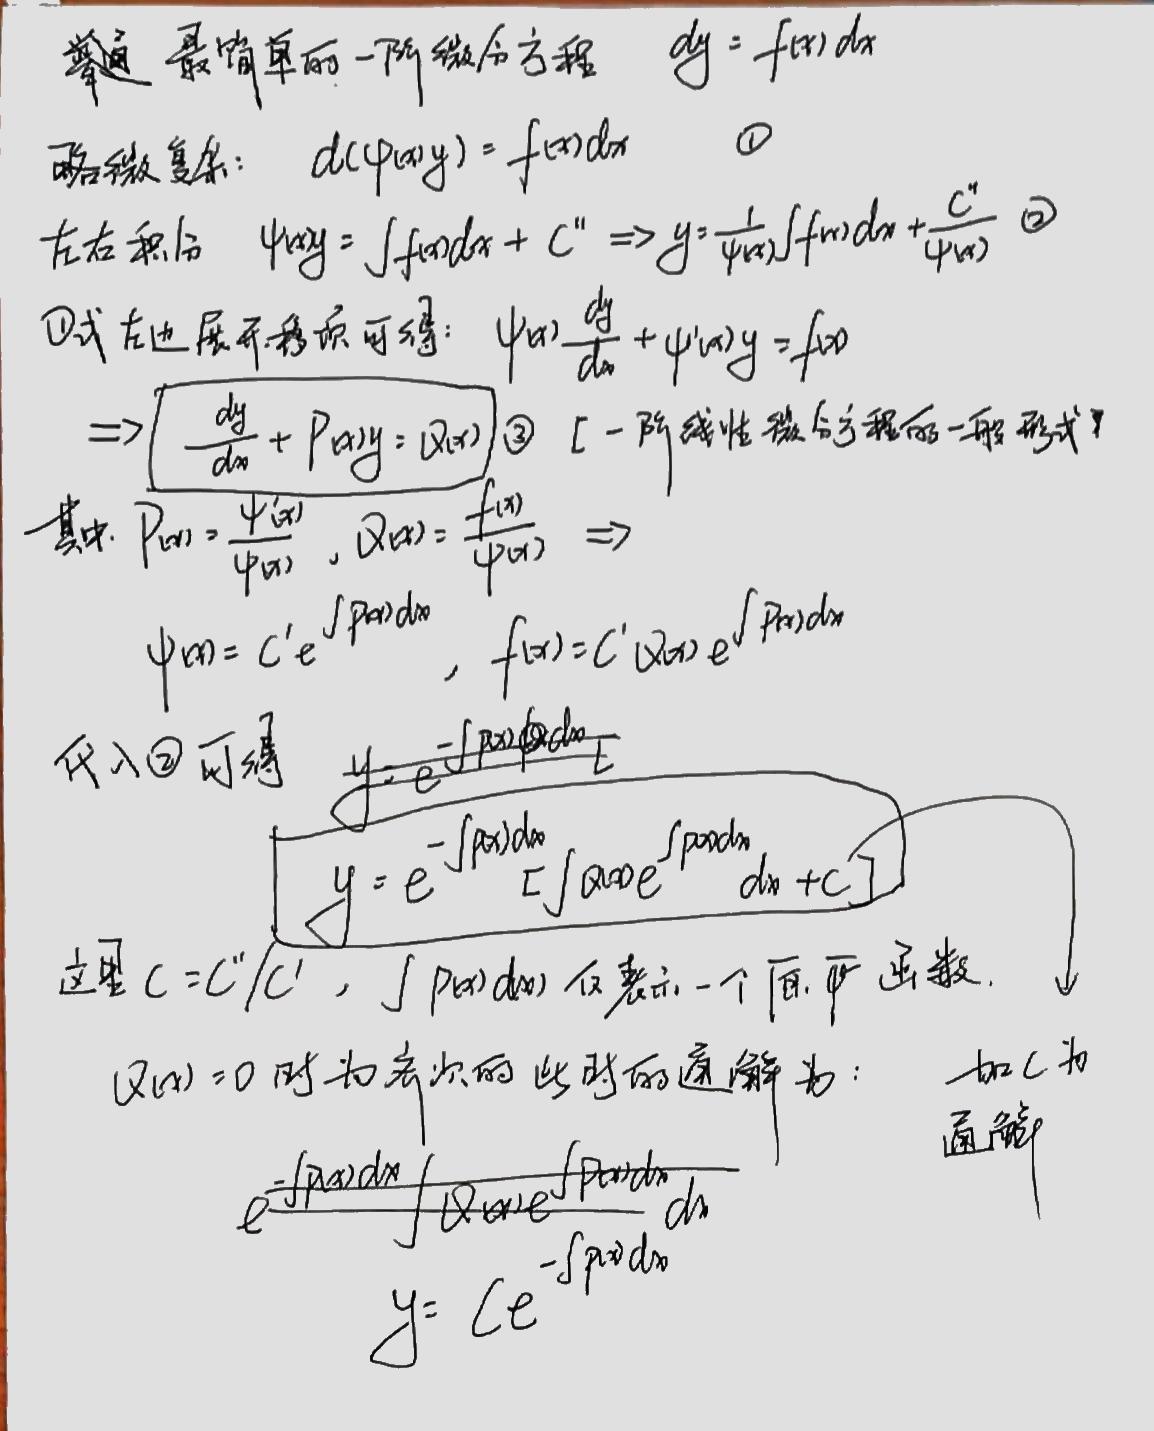 最简单的一阶微分方程 dy = f(x) dx
略微复杂: d(ψ(x)y) = f(x)dx ①
左右积分 ψ(x)y = ∫f(x)dx + C'' => y = 1/ψ(x) ∫f(x)dx + C''/ψ(x) ②
①式左边展开移项可得: ψ(x) dy/dx + ψ'(x)y = f(x)
=> dy/dx + P(x)y = Q(x) ③ [一阶线性微分方程的一般形式]
其中. P(x) = ψ'(x)/ψ(x) , Q(x) = f(x)/ψ(x) =>
ψ(x) = C'e^{∫P(x)dx} , f(x) = C'Q(x)e^{∫P(x)dx}
代入②可得
y = e^{-∫P(x)dx} [∫Q(x)e^{∫P(x)dx} dx + C]
这里 C = C''/C' , ∫P(x)dx 仅表示一个 函数.
Q(x) = 0 时为齐次的 此时的通解为:
加C为
通解
e^{-∫P(x)dx} ∫Q(x)e^{∫P(x)dx} dx
y = Ce^{-∫P(x)dx}